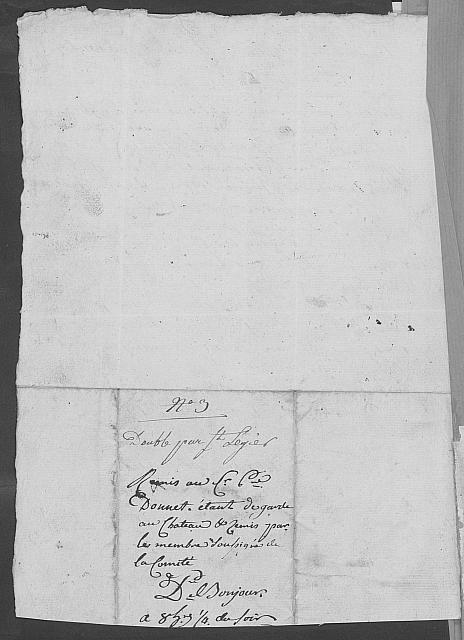 No 3
Double par St Legier
Remis au Cn. Pre
Donnet étant de garde
au Chateau & remis par
les membre Soussignés de
la Comité
Dl Bonjour
a 8h 1/4 du soir